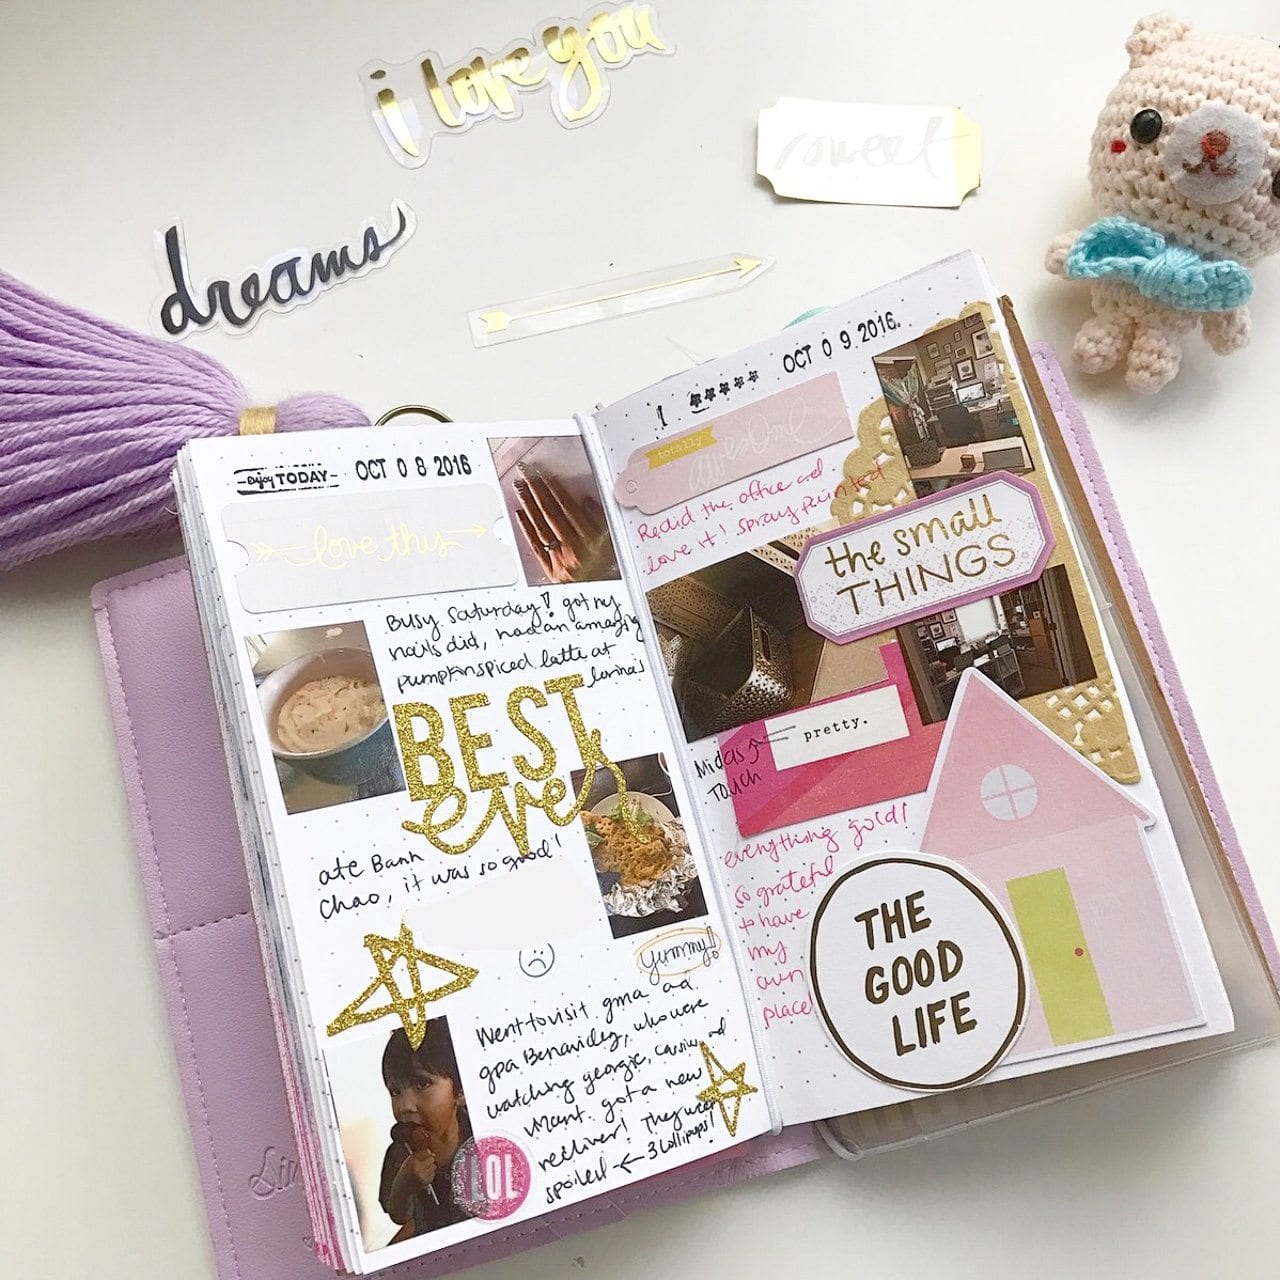 i love you
sweet
dreams
enjoy TODAY
OCT 0 8 2016
love this
Busy Saturday! got my
nails did, had an amazing
pumpkinspiced latte at
BEST
ever
ate Banh
Chao, it was so good!
yummy!
Went to visit gma ad
gpa Benavidez, who were
watching georgie, Cassius, ad
got a new
recliver! They were
spoiled ← 3 lollipops!
LOL
OCT 0 9 2016
totally
awesome
Redid the office ad
love it! Spray painted
the small
THINGS
pretty.
Midas
Touch
everything gold!
so grateful
to have
my
own
place!
THE
GOOD
LIFE